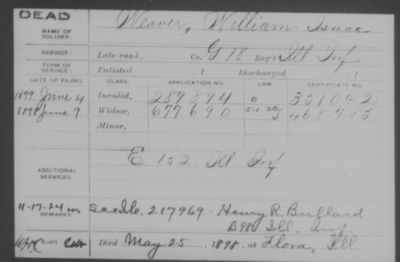 DEAD
NAME OF SOLDIER: Weaver, William Isaac
SERVICE: Late rank, Co. G 18 Reg't Ill Inf
TERM OF SERVICE: Enlisted 1 Discharged 1
DATE OF FILING. CLASS. APPLICATION NO. LAW CERTIFICATE NO.
1879 June 4 Invalid, 289894 0
1898 June 9 Widow, 677690
Minor,
ADDITIONAL SERVICES: E 152 Ill Inf
11-17-24 REMARKS: See Ctf. 217969 - Henry R. Bullard
B 98 Ill. Inf.
Died May 25 1898, at Flora, Ill.